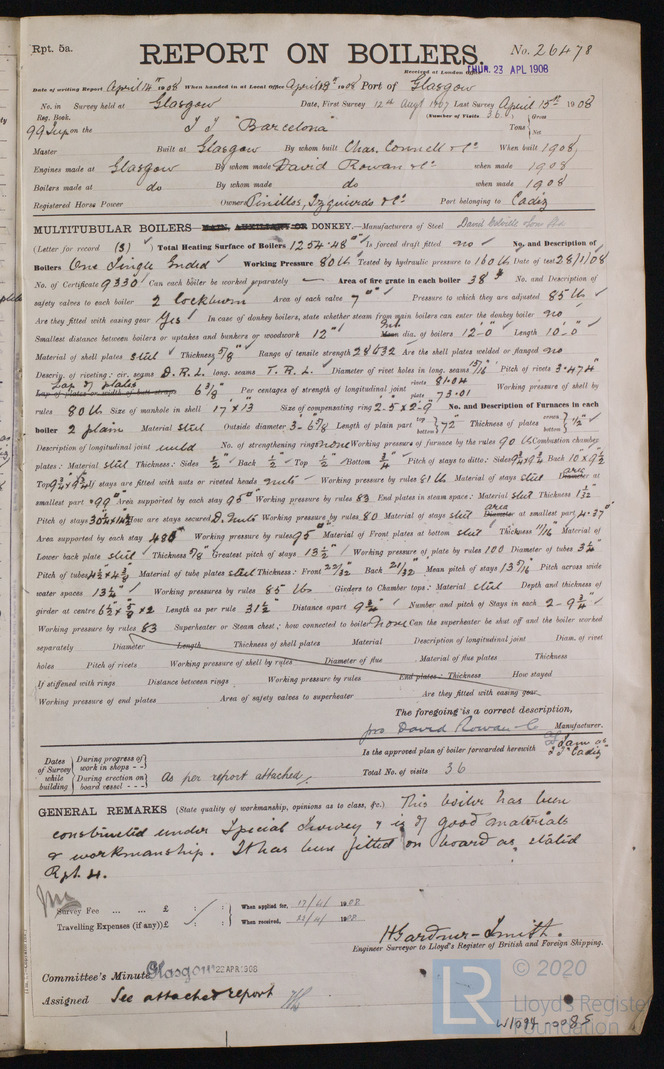 Rpt. 5a.
REPORT ON BOILERS.
No. 26478
Received at London Office THUR. 23 APL 1908
Date of writing Report April 14th 1908 When handed in at Local Office April 1908 Port of Glasgow
No. in Survey held at Glasgow Date, First Survey 12th Augt 1907 Last Survey April 15th 1908
Reg. Book. (Number of Visits 36)
99 Sup on the "Barcelona" Tons { Gross Net
Master Built at Glasgow By whom built Chas. Connell & Co When built 1908
Engines made at Glasgow By whom made David Rowan & Co when made 1908
Boilers made at do By whom made do when made 1908
Registered Horse Power Owners Pinillos, Izquierdo & Co Port belonging to Cadiz
MULTITUBULAR BOILERS MAIN, AUXILIARY OR DONKEY.—Manufacturers of Steel David Colville & Sons
(Letter for record (S)) Total Heating Surface of Boilers 1254.48 Is forced draft fitted no No. and Description of
Boilers One Single Ended Working Pressure 80 lb Tested by hydraulic pressure to 160 lb Date of test 28/1/08
No. of Certificate 9330 Can each boiler be worked separately Area of fire grate in each boiler 38 No. and Description of
safety valves to each boiler 2 Cockburn Area of each valve 7" Pressure to which they are adjusted 85 lb
Are they fitted with easing gear Yes In case of donkey boilers, state whether steam from main boilers can enter the donkey boiler no
Smallest distance between boilers or uptakes and bunkers or woodwork 12" Mean dia. of boilers 12-0" Length 10-0"
Material of shell plates steel Thickness 5/8 Range of tensile strength 28 & 32 Are the shell plates welded or flanged no
Descrip. of riveting: cir. seams D.R.L. long. seams T.R.L. Diameter of rivet holes in long. seams 15/16 Pitch of rivets 3.474"
Lap of plates or width of butt straps 6 3/8" Per centages of strength of longitudinal joint rivets 81.04 plate 73.01 Working pressure of shell by
rules 80 lb Size of manhole in shell 17" x 13" Size of compensating ring 2.5 x 2-9" No. and Description of Furnaces in each
boiler 2 plain Material steel Outside diameter 3-6 7/8 Length of plain part top bottom 72" Thickness of plates crown bottom 1/2"
Description of longitudinal joint weld No. of strengthening rings none Working pressure of furnace by the rules 90 lb Combustion chamber
plates: Material steel Thickness: Sides 1/2" Back 1/2" Top 1/2" Bottom 3/4" Pitch of stays to ditto: Sides 9 3/4 x 9 3/4 Back 10 x 9 1/2
Top 9 3/4 x 9 3/4 If stays are fitted with nuts or riveted heads nuts Working pressure by rules 81 lb Material of stays steel Diameter area at
smallest part .99" Area supported by each stay 95" Working pressure by rules 83 End plates in steam space: Material steel Thickness
Pitch of stays How are stays secured D. nuts Working pressure by rules 80 Material of stays steel Diameter area at smallest part 4.37"
Area supported by each stay 480" Working pressure by rules 95 Material of Front plates at bottom steel Thickness 11/16" Material of
Lower back plate steel Thickness 5/8" Greatest pitch of stays 13 1/2" Working pressure of plate by rules 100 Diameter of tubes 3 1/4"
Pitch of tubes 4 1/2 x 4 3/8 Material of tube plates steel Thickness: Front 22/32 Back 21/32 Mean pitch of stays 13 7/16" Pitch across wide
water spaces 13 1/4" Working pressures by rules 85 lbs Girders to Chamber tops: Material steel Depth and thickness of
girder at centre 6 1/2" x 5/8 x 2 Length as per rule 31 1/2 Distance apart 9 3/4" Number and pitch of Stays in each 2 - 9 3/4"
Working pressure by rules 83 Superheater or Steam chest; how connected to boiler none Can the superheater be shut off and the boiler worked
separately Diameter Length Thickness of shell plates Material Description of longitudinal joint Diam. of rivet
holes Pitch of rivets Working pressure of shell by rules Diameter of flue Material of flue plates Thickness
If stiffened with rings Distance between rings Working pressure by rules End plates: Thickness How stayed
Working pressure of end plates Area of safety valves to superheater Are they fitted with easing gear
The foregoing is a correct description,
pro David Rowan & Co Manufacturer.
Dates of Survey while building { During progress of work in shops - - During erection on board vessel - - - } As per report attached
Is the approved plan of boiler forwarded herewith Same as S.S. "Cadiz"
Total No. of visits 36
GENERAL REMARKS (State quality of workmanship, opinions as to class, &c.) This boiler has been
constructed under Special Survey & is of good materials
& workmanship. It has been fitted on board as stated
Rpt. 4.
Survey Fee ... ... £ : : When applied for, 17/4/1908
Travelling Expenses (if any) £ : : When received, 22/4/1908
H Gardner-Smith.
Engineer Surveyor to Lloyd's Register of British and Foreign Shipping.
Committee's Minute Glasgow 22 APR 1908
Assigned See attached report
LR © 2020
Lloyd's Register
Foundation
W1094-0085